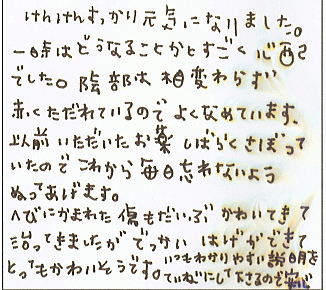 けんけんすっかり元気になりました。
一時はどうなることかとすごく心配
でした。陰部は相変わらず
赤くただれているのでよくなめています。
以前いただいたお薬しばらくさぼって
いたのでこれから毎日忘れないよう
ぬってあげます。
へびにかまれた傷もだいぶかわいてきて
治ってきましたがでっかいはげができて
とってもかわいそうです。いつもわかりやすい説明を
ていねいにして下さるので安心